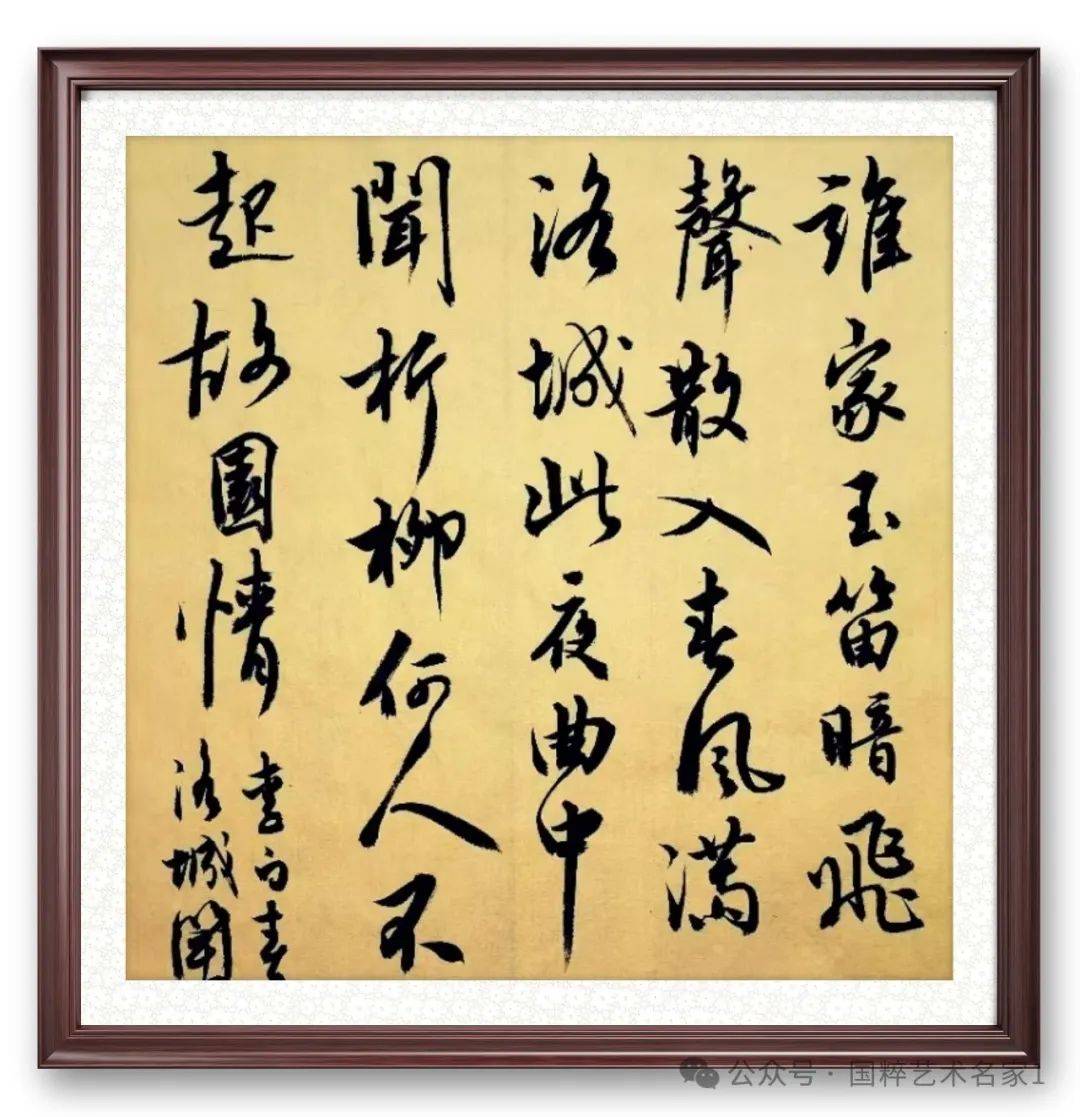 誰家玉笛暗飛
聲散入春風滿
洛城此夜曲中
聞折柳何人不
起故園情
李白春
洛城聞
公众号 · 国粹艺术名家1